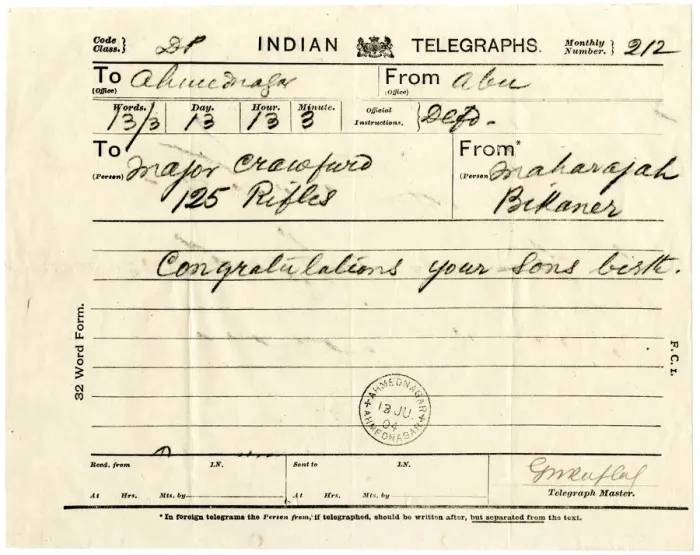 Code Class. } DP INDIAN TELEGRAPHS. Monthly Number. } 212
To Ahmednagar From Abu
(Office) (Office)
Words. Day. Hour. Minute. Official Instructions.
13/3 13 13 3
To From*
(Person) Major Crawfurd (Person) Maharajah
125 Rifles Bikaner
Congratulations your sons birth.
32 Word Form.
F.C.I.
AHMEDNAGAR
13 JU.
04
AHMEDNAGAR
Recd. from I.N. Sent to I.N.
At Hrs. Mts. by At Hrs. Mts. by Telegraph Master.
* In foreign telegrams the Person from, if telegraphed, should be written after, but separated from the text.